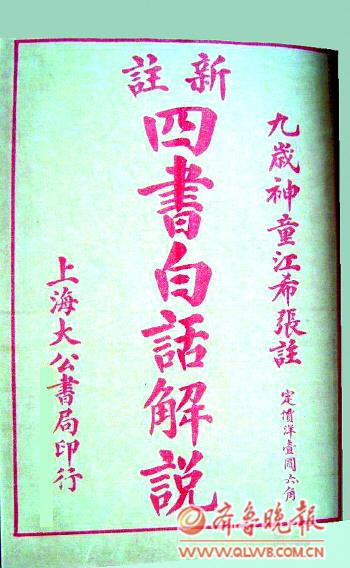 新註
四書白話解説
九歲神童江希張註
定價洋壹圓六角
上海大公書局印行
齐鲁晚报
WWW.QLWB.COM.CN